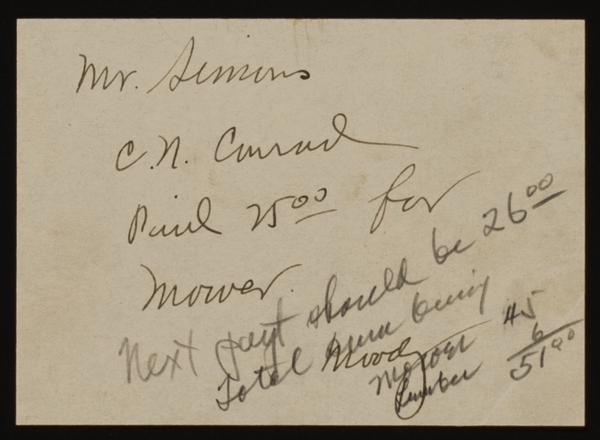 Mr. Simons
C. N. Conrad
Paid 25 00 for
Mower.
Next payt should be 26 00
Total sum being
Moody
Mower 45
Lumber 6
51 00